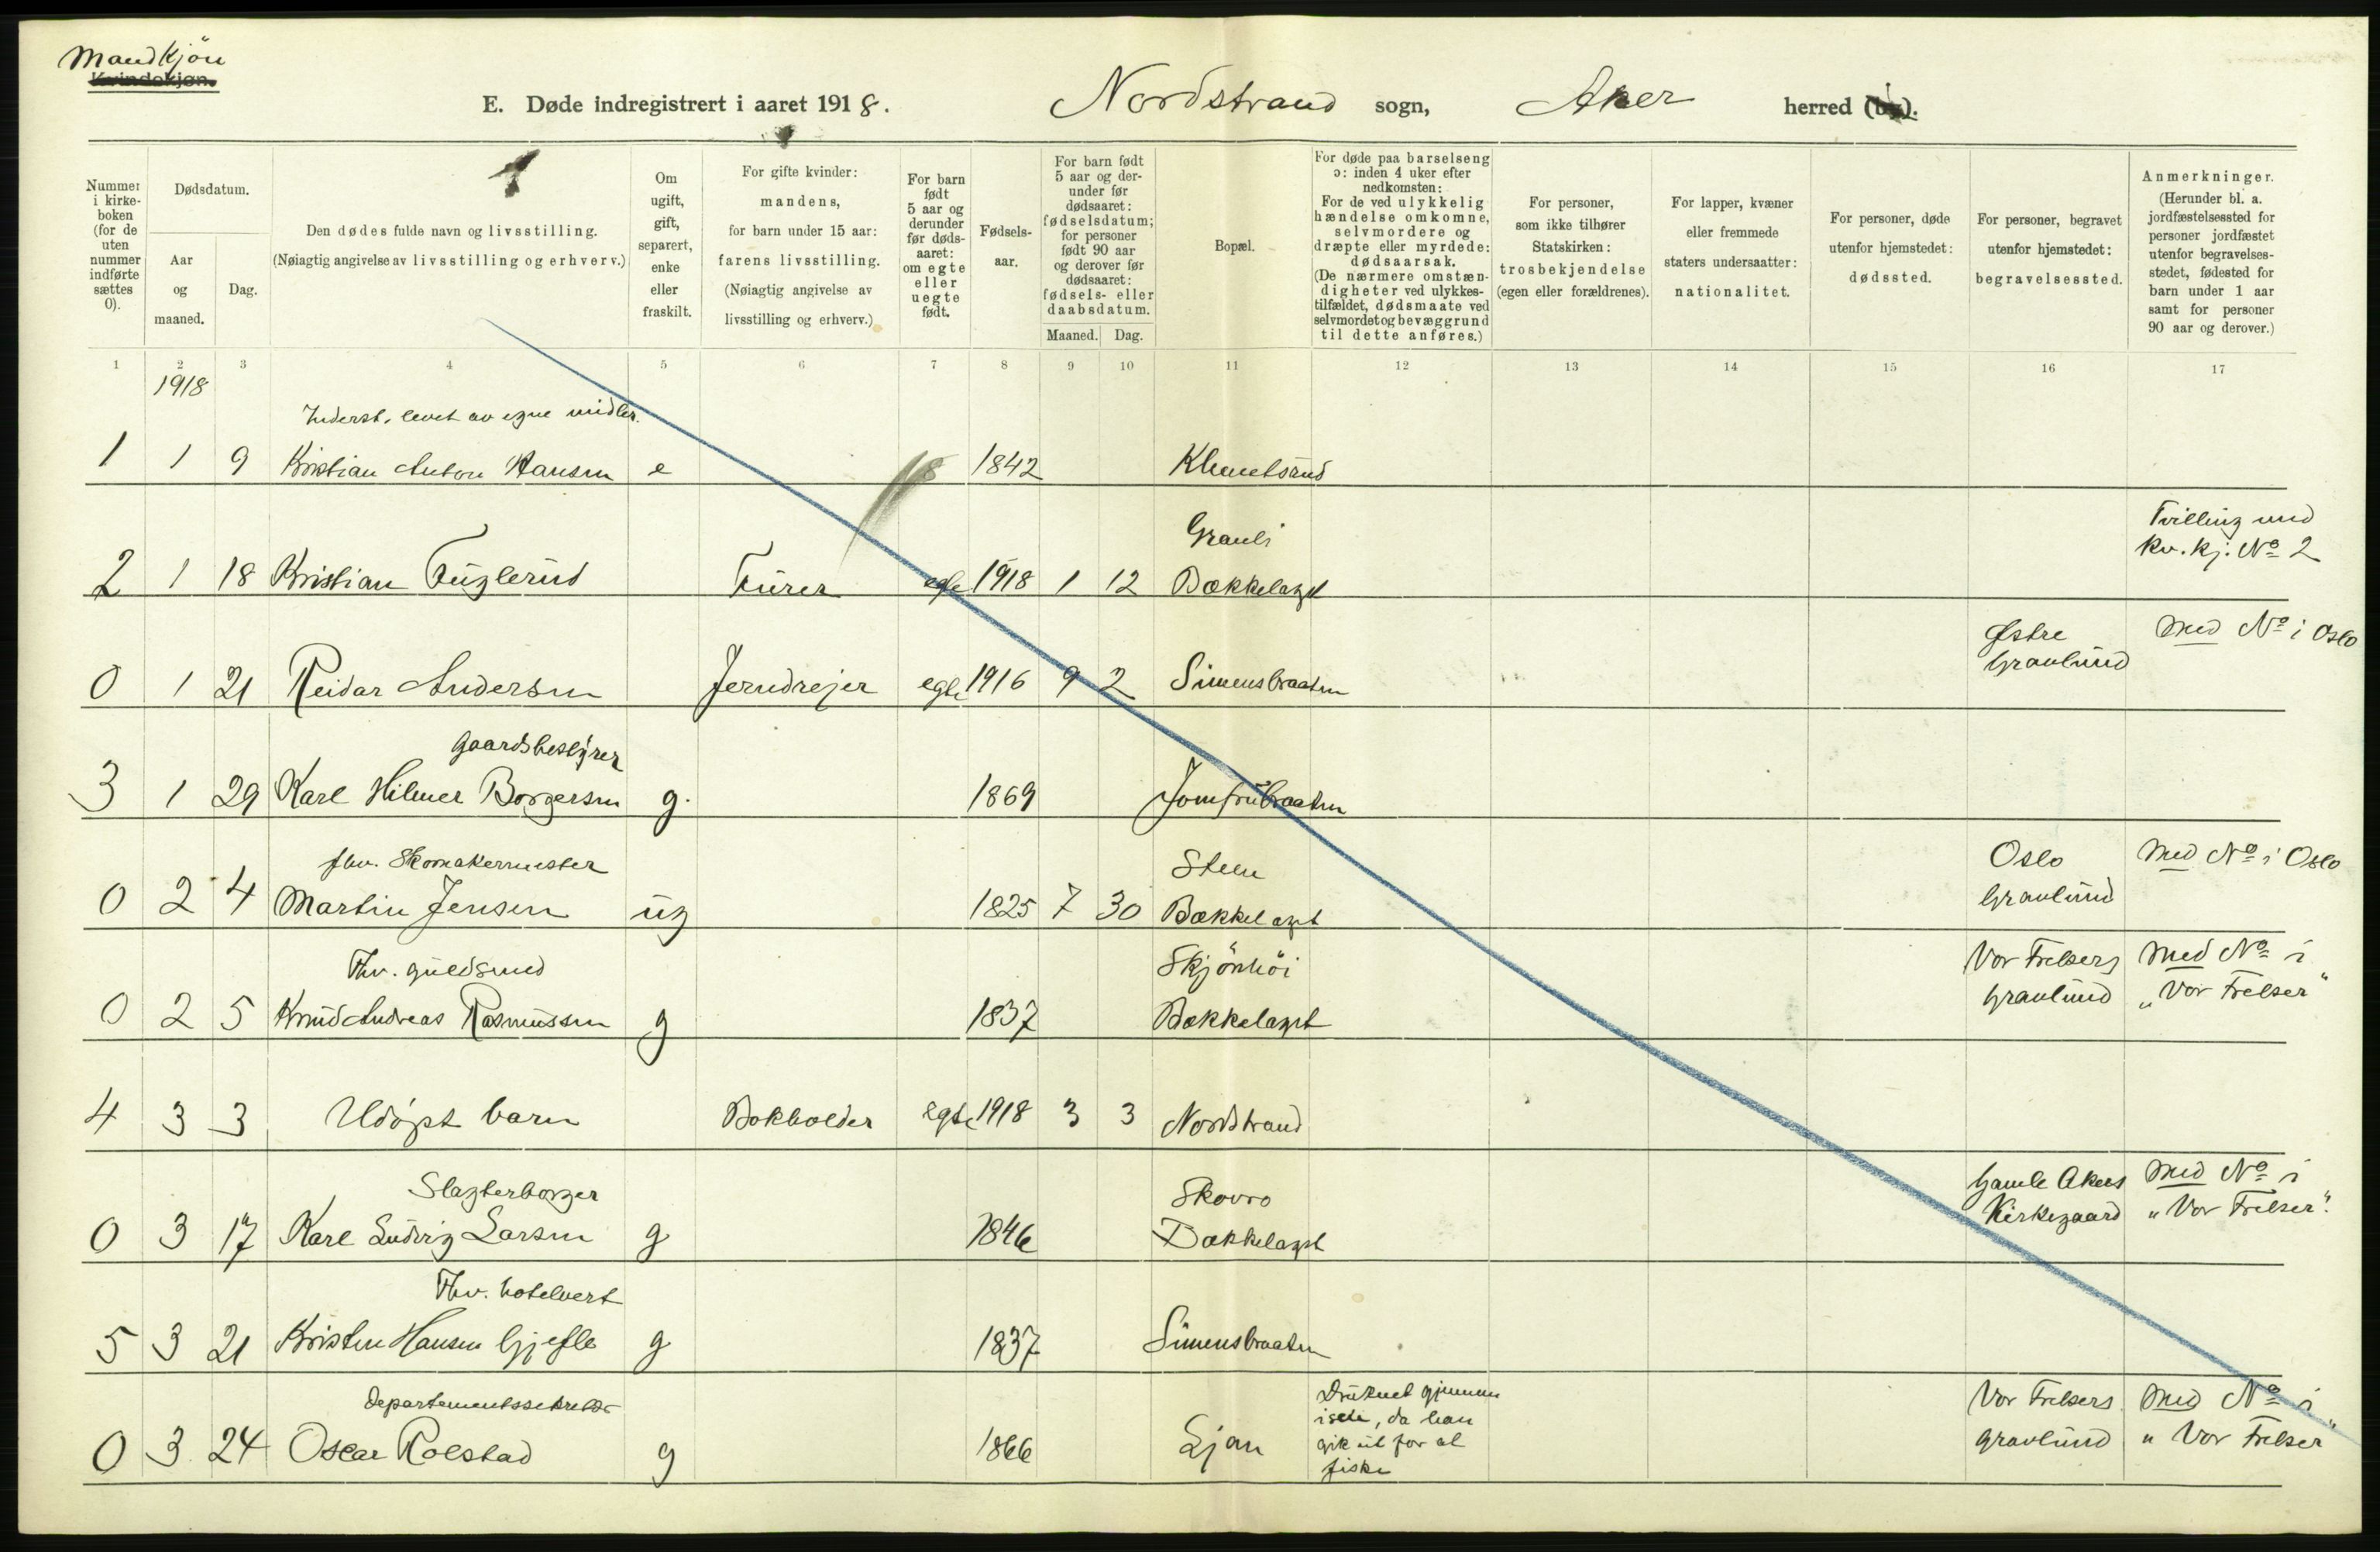 Mandkjön
Kvindekjøn.
E. Døde indregistrert i aaret 1918. Nordstrand sogn, Aker herred (by).
Nummer i kirkeboken (for de uten nummer indførte sættes 0).
Dødsdatum.
Aar og maaned.
Dag.
Den dødes fulde navn og livsstilling.
(Nøiagtig angivelse av livsstilling og erhverv.)
Om ugift, gift, separert, enke eller fraskilt.
For gifte kvinder: mandens, for barn under 15 aar: farens livsstilling. (Nøiagtig angivelse av livsstilling og erhverv.)
For barn født 5 aar og derunder før dødsaaret: om egte eller uegte født.
Fødselsaar.
For barn født 5 aar og derunder før dødsaaret: fødselsdatum; for personer født 90 aar og derover før dødsaaret: fødsels- eller daabsdatum.
Maaned. Dag.
Bopæl.
For døde paa barselseng ɔ: inden 4 uker efter nedkomsten: For de ved ulykkelig hændelse omkomne, selvmordere og dræpte eller myrdede: dødsaarsak. (De nærmere omstændigheter ved ulykkestilfældet, dødsmaate ved selvmordet og bevæggrund til dette anføres.)
For personer, som ikke tilhører Statskirken: trosbekjendelse (egen eller forældrenes).
For lapper, kvæner eller fremmede staters undersaatter: nationalitet.
For personer, døde utenfor hjemstedet: dødssted.
For personer, begravet utenfor hjemstedet: begravelsessted.
Anmerkninger. (Herunder bl. a. jordfæstelsessted for personer jordfæstet utenfor begravelsesstedet, fødested for barn under 1 aar samt for personer 90 aar og derover.)
1 2 3 4 5 6 7 8 9 10 11 12 13 14 15 16 17
1918
Inderst. levet av egne midler.
1 1 9 Kristian Anton Hansen e 1842 Klemetsrud
Grauli Tvilling med
kv. kj. No 2
2 1 18 Kristian Fuglerud Furer egte 1918 1 12 Bækkelaget
Østre Med No i Oslo
Gravlund
0 1 21 Reidar Andersen Jerndrejer egte 1916 9 2 Simensbraaten
Gaardsbestyrer
3 1 29 Karl Hilmer Borgersen g. 1869 Jomfrubraaten
fhv. Skomakermester Steen Oslo Med No i Oslo
0 2 4 Martin Jensen ug 1825 7 30 Bækkelaget Gravlund
Fhv. guldsmed Skjönhöi Vor Frelsers Med No i
0 2 5 Knud Andreas Rasmussen g 1837 Bækkelaget Gravlund "Vor Frelser"
4 3 3 Udöpt barn Bokholder egte 1918 3 3 Nordstrand
Slagterborger Skovro Gamle Akers Med No i
0 3 17 Karl Ludvig Larsen g 1846 Bækkelaget Kirkegaard "Vor Frelser".
Fhv. hotelvert
5 3 21 Kristen Hansen Gjefle g 1837 Simensbraaten
Departementssekretær Druknet gjennem Vor Frelsers Med No i
isen, da han
0 3 24 Oscar Rolstad g 1866 Ljan gik ut for at Gravlund "Vor Frelser"
fiske